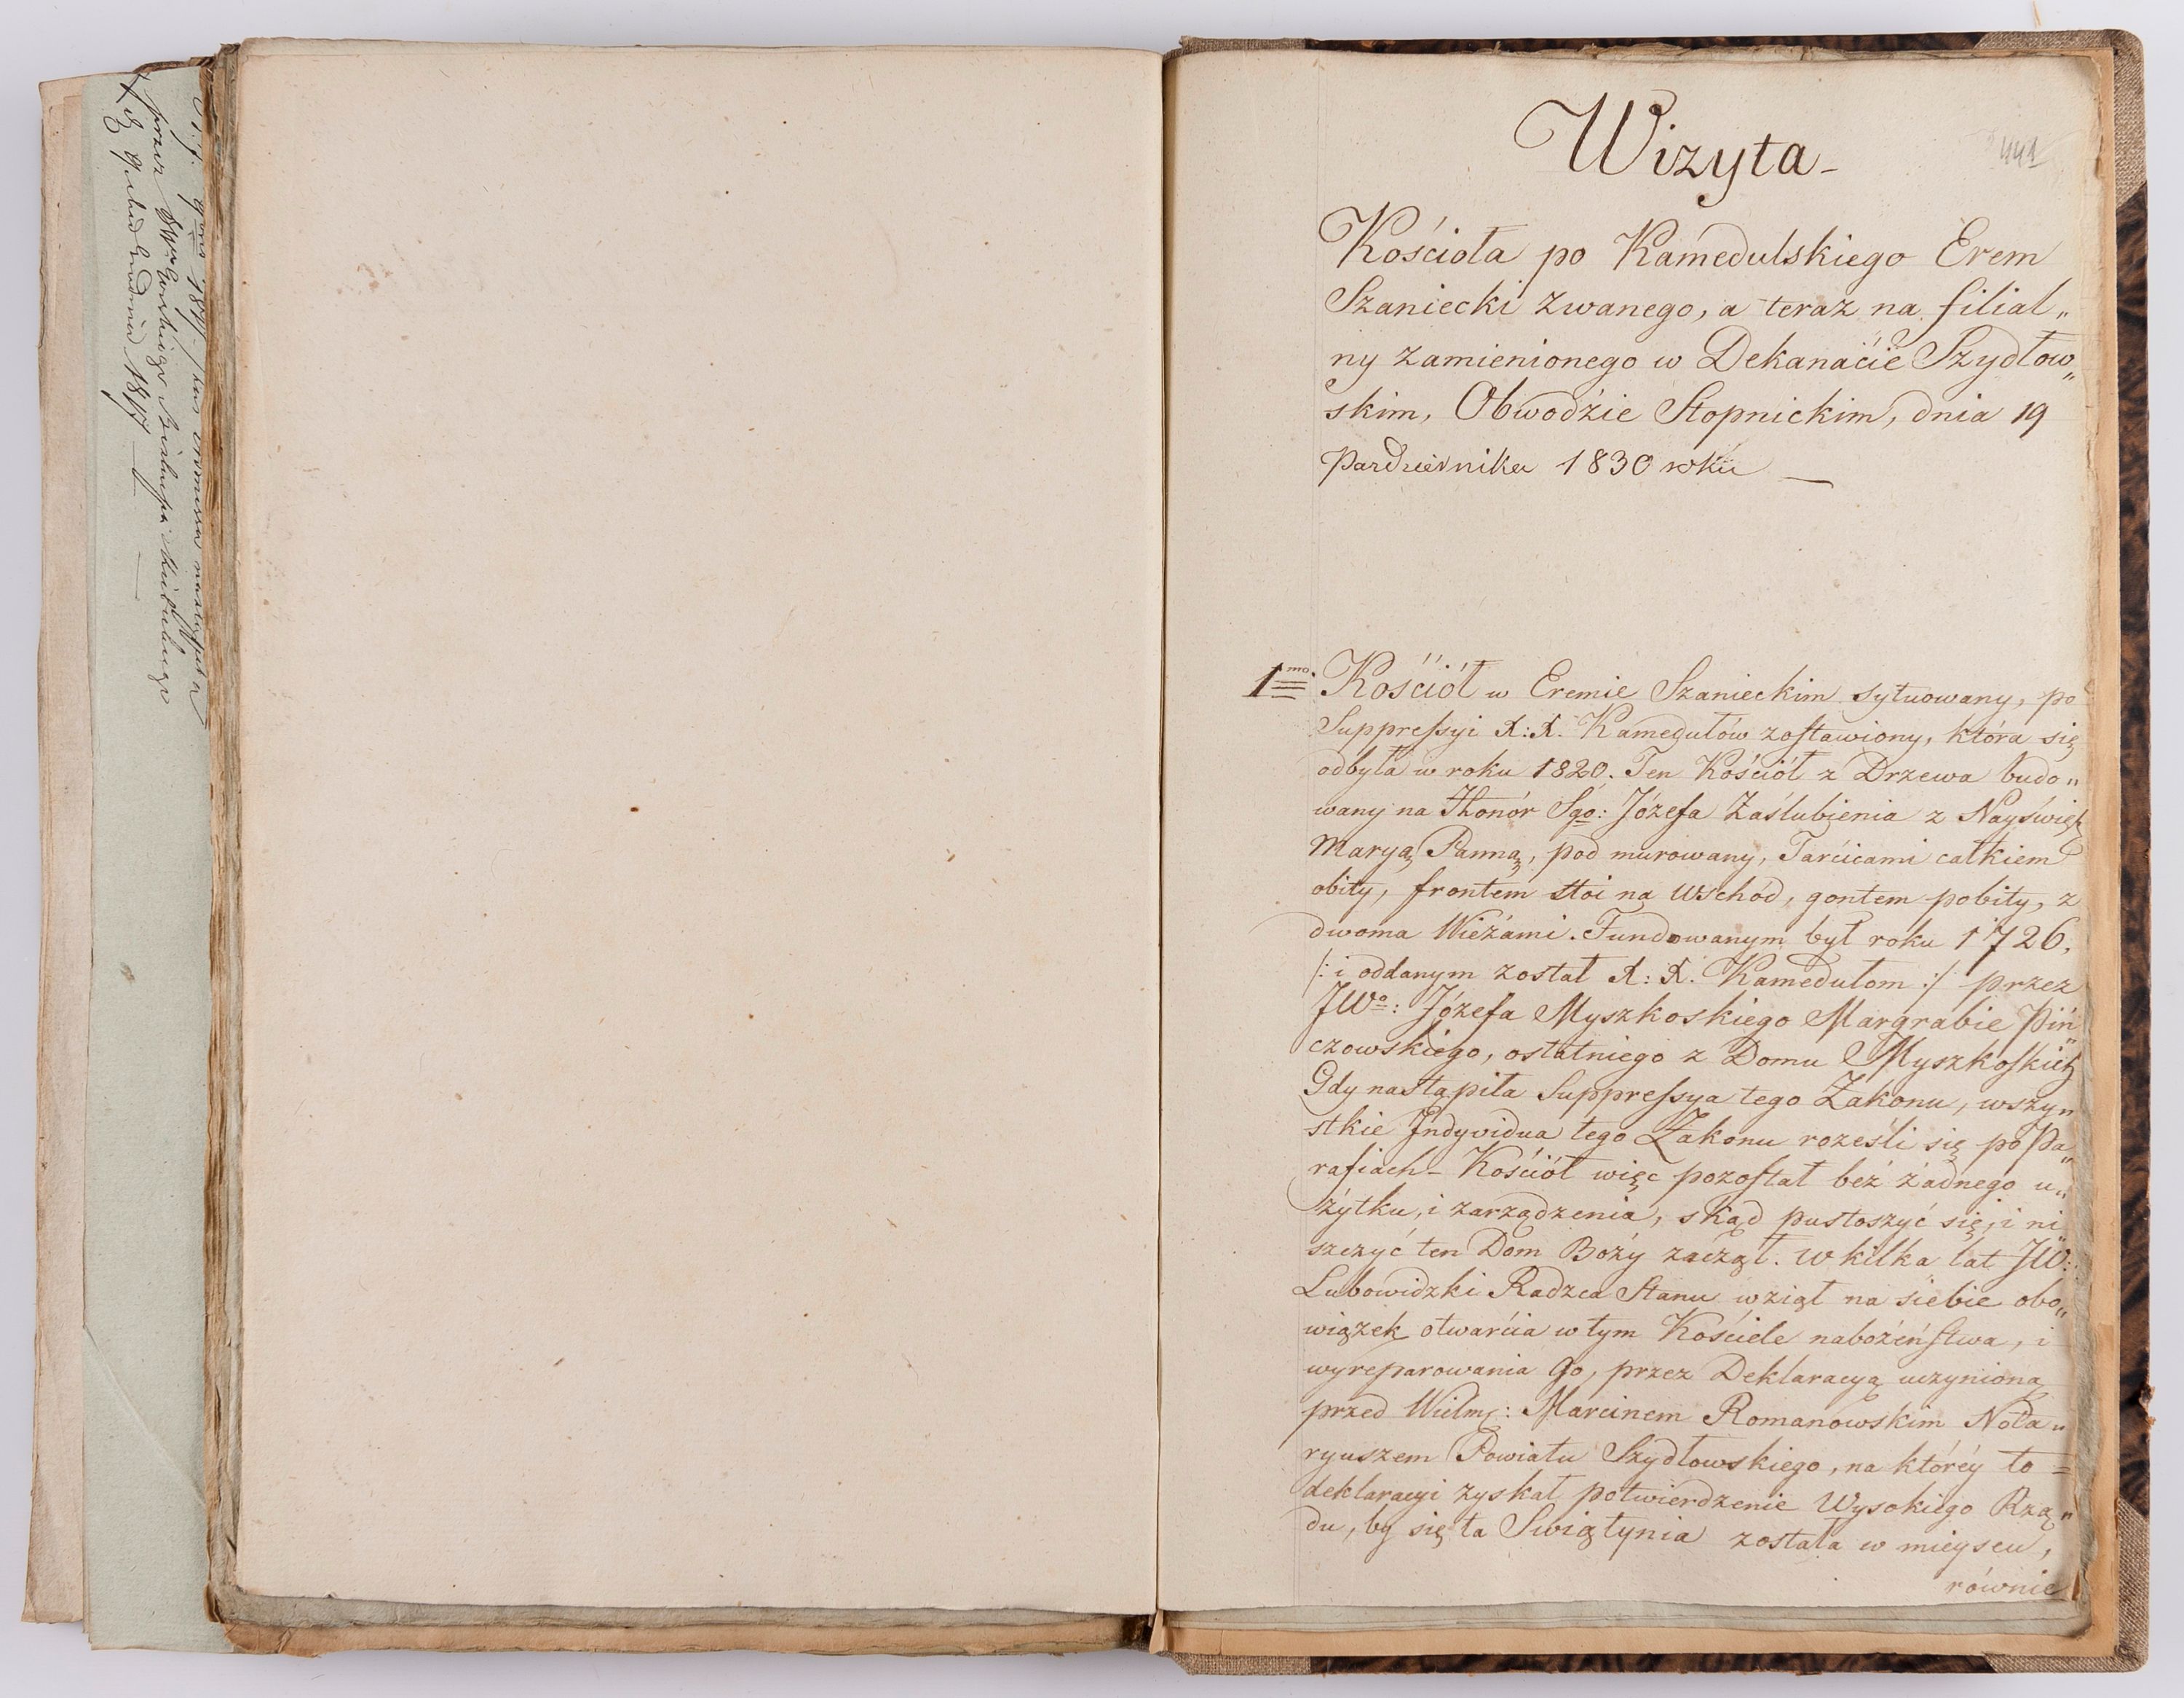 Wizyta-
441
Kościoła po Kamedulskiego Erem
Szaniecki zwanego, a teraz na filial„
ny zamienionego w Dekanacie Szydłow„
skim, Obwodzie Stopnickim, dnia 19
Październiku 1830 roku —
1mo. Kościół w Eremie Szanieckim sytuowany, po
Suppressyi X:X: Kamedułów zostawiony, która się
odbyła w roku 1820. Ten Kościół z Drzewa budo„
wany na Honór Sgo: Józefa Zaślubienia z Nayświęt
Maryą Panną, pod murowany, Tarcicami całkiem
obity, frontem stoi na Wschód, gontem pobity, z
dwoma Wieżami. Fundowanym był roku 1726.
/: i oddanym został X: X. Kamedułom :/ przez
JWo: Józefa Myszkoskiego Margrabie Piń„
czowskiego, ostatniego z Domu Myszkoskich
Gdy nastąpiła Suppressya tego Zakonu, wszy„
stkie Indyvidua tego Zakonu roześli się po Pa„
rafiach- Kościół więc pozostał beż żadnego u„
żytku, i zarządzenia, skąd pustoszyć się, i ni„
szczyć ten Dom Boży zaczął. W kilka lat JW:
Lubowidzki Radzca Stanu wziął na siebie obo„
wiązek otwarcia w tym Kościele nabożeństwa, i
wyreparowania go, przez Deklaracyą uczynioną
przed Wielmę: Marcinem Romanowskim Nota„
ryuszem Powiatu Szydłowskiego, na któréy to =
deklaracyi zyskał potwierdzenie Wysokiego Rzą„
du, by się ta Swiątynia została w mieyscu,
równie